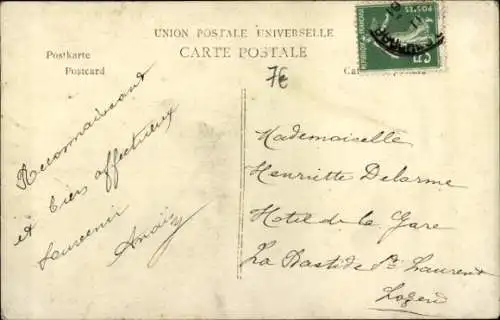 UNION POSTALE UNIVERSELLE
CARTE POSTALE
Postkarte
Postcard
7€
Reconnaissant
et bien affectueux
souvenir
Anaïs
Mademoiselle
Henriette Delorme
Hotel de la Gare
La Bastide St Laurent
Lozère